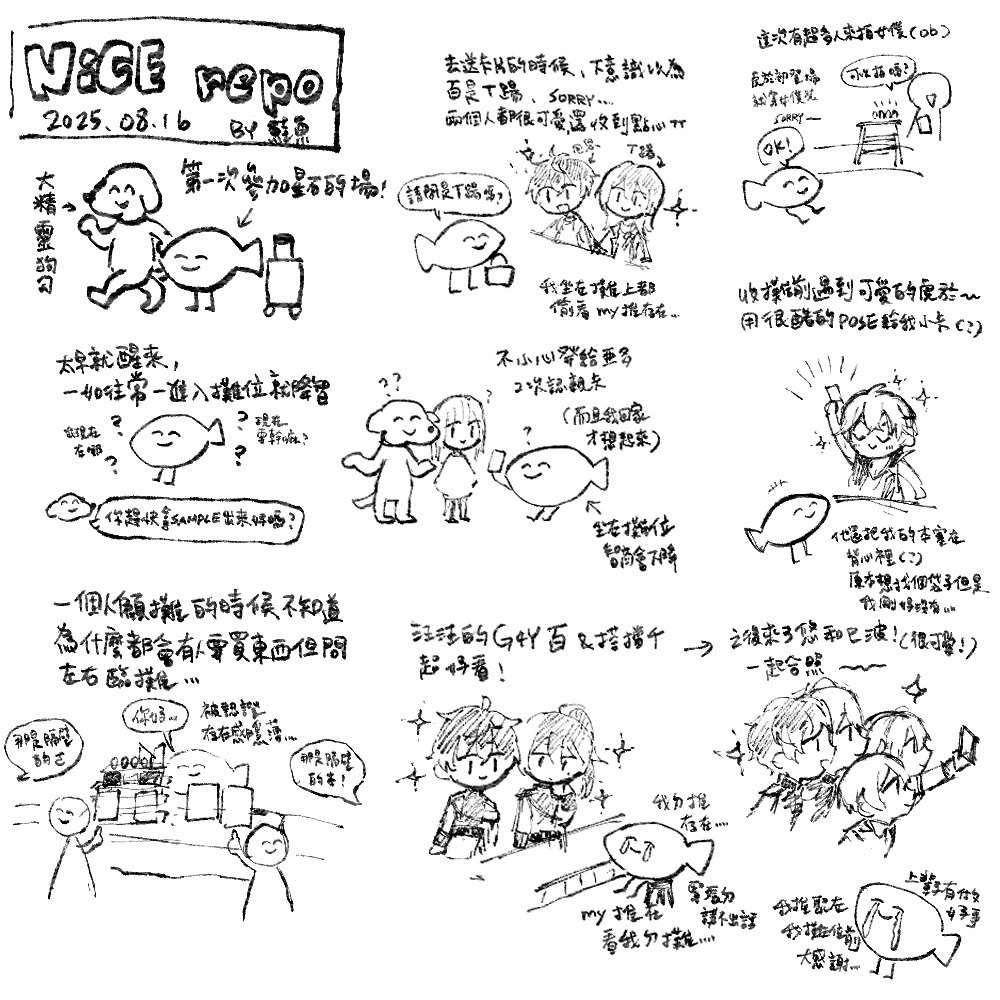 NiCE repo
2025.08.16 BY 鮭魚
第一次參加星石的場!
大精靈狗勾
太早就醒來,
一如往常一進入攤位就降智
我現在
在哪
現在
要幹嘛?
?
?
?
?
你趕快拿SAMPLE出來好嗎?
一個人顧攤的時候不知道
為什麼都會有人要買東西但問
左右臨攤…
那是隔壁
的ㄛ
你好…
被認證
存在感稀薄…
那是隔壁
的本!
去送卡片的時候,下意識以為
百是T踢、SORRY…
兩個人都很可愛還收到點心TT
請問是T踢嗎?
T踢
我坐在攤上都
偷看my推存在…
不小心發給亞多
2次認親卡
(而且我回家
才想起來)
??
?
?
坐在攤位
智商會下降
汪汪的G4Y百&搭擋千
超好看!
我ㄉ推
存在…
my推在
看我ㄉ攤…
講不出話
這次有超多人來拍女僕(ob)
SORRY~
可以拍嗎?
OK!
收攤前遇到可愛的虎於~
用很酷的POSE給我小卡(?)
他還把我的本塞在
背心裡(?)
原本想找個袋子但是
我剛好沒有…
之後來了悠和巳波!(很可愛!)
一起合照~~
我推聚在
我攤位前
大感謝…
上輩子有做
好事